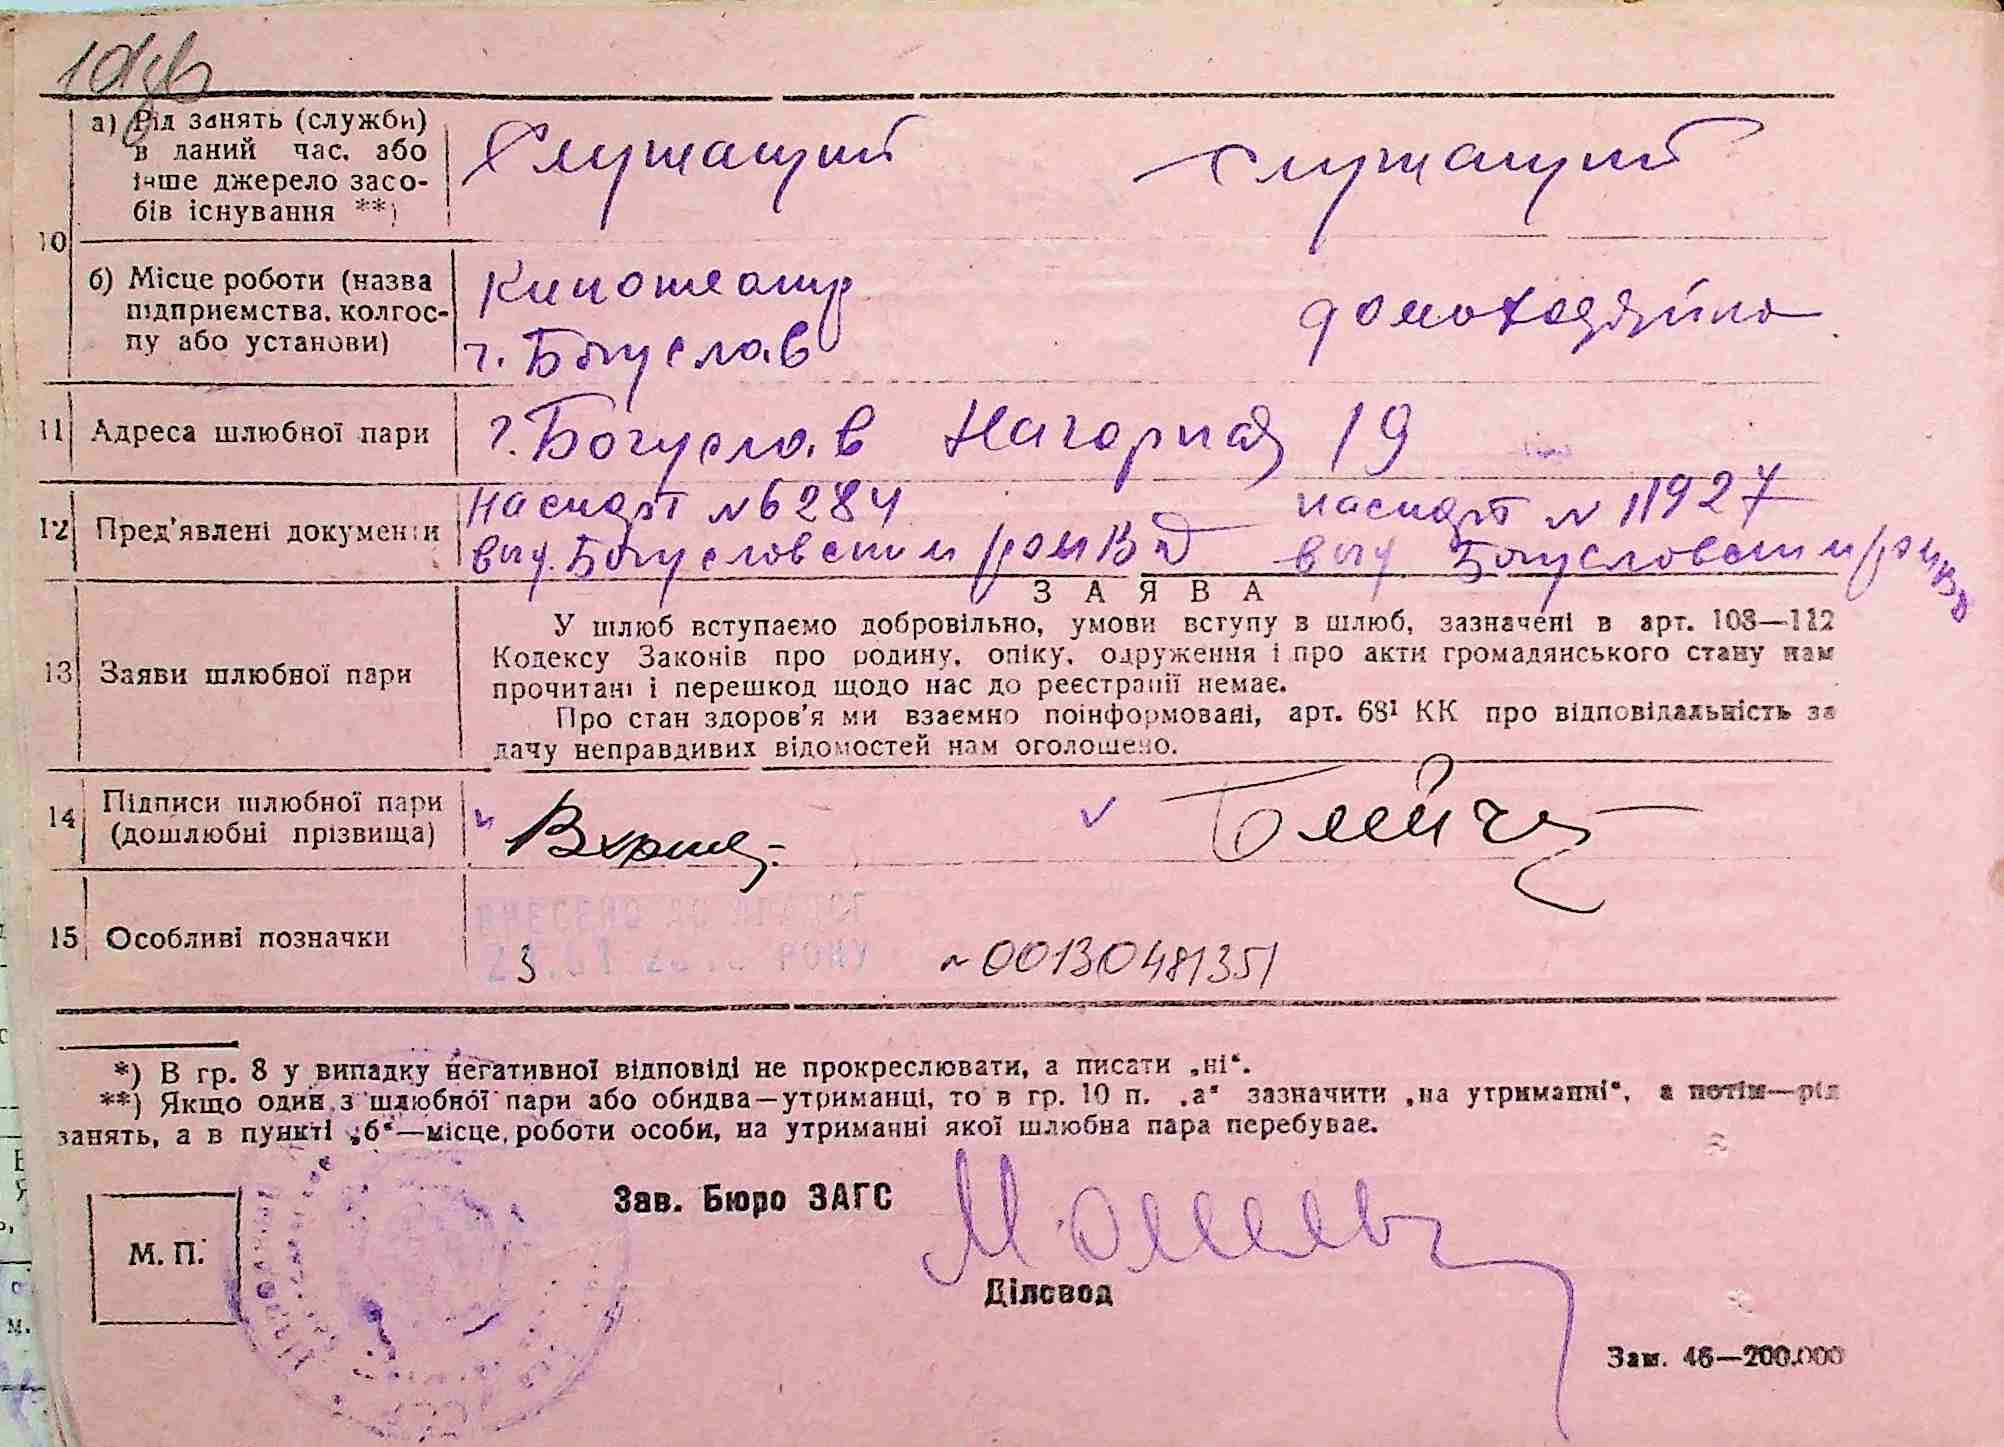 10
а) Рід занять (служби)
в даний час, або
інше джерело засо-
бів існування **)
Служащий
Служащий
б) Місце роботи (назва
підприємства, колгос-
пу або установи)
Кинотеатр
г. Богуслав
домохозяйка
11 Адреса шлюбної пари
г. Богуслав Нагорная 19
12 Пред'явлені документи
паспорт № 6284
выд. Богуславским РОМВД
паспорт № 11927
выд Богуславским РОМВД
13 Заяви шлюбної пари
ЗАЯВА
У шлюб вступаємо добровільно, умови вступу в шлюб, зазначені в арт. 108—112
Кодексу Законів про родину, опіку, одруження і про акти громадянського стану нам
прочитані і перешкод щодо нас до реєстрації немає.
Про стан здоров'я ми взаємно поінформовані, арт. 68¹ КК про відповідальність за
дачу неправдивих відомостей нам оголошено.
14 Підписи шлюбної пари
(дошлюбні прізвища)
15 Особливі позначки
№ 00130481351
*) В гр. 8 у випадку негативної відповіді не прокреслювати, а писати „ні“.
**) Якщо один з шлюбної пари або обидва—утриманці, то в гр. 10 п. „а“ зазначити „на утриманні“, а потім—рід
занять, а в пункті „б“—місце роботи особи, на утриманні якої шлюбна пара перебуває.
М. П.
Зав. Бюро ЗАГС
Діловод
Зам. 46—200.000